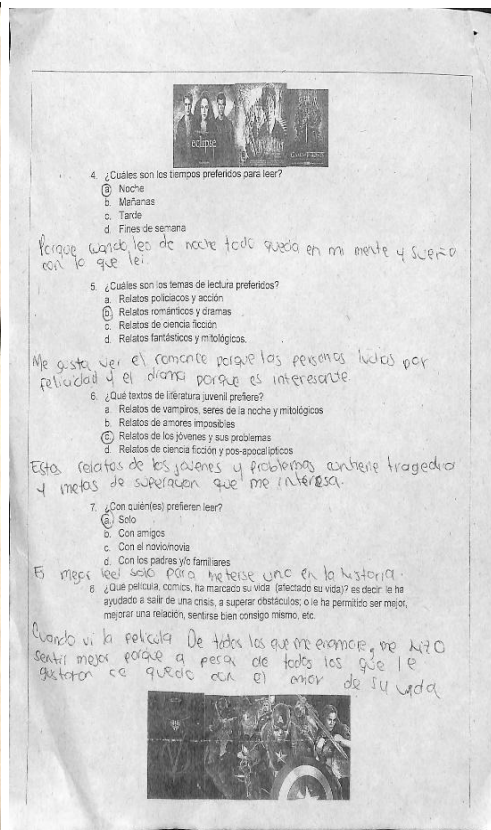 eclipse
4. ¿Cuáles son los tiempos preferidos para leer?
a. Noche
b. Mañanas
c. Tarde
d. Fines de semana
Porque cuando leo de noche todo queda en mi mente y sueño
con lo que lei.
5. ¿Cuáles son los temas de lectura preferidos?
a. Relatos policiacos y acción
b. Relatos románticos y dramas
c. Relatos de ciencia ficción
d. Relatos fantásticos y mitológicos.
Me gusta ver el romance porque las personas luchas por
felicidad y el drama porque es interesante.
6. ¿Qué textos de literatura juvenil prefiere?
a. Relatos de vampiros, seres de la noche y mitológicos
b. Relatos de amores imposibles
c. Relatos de los jóvenes y sus problemas
d. Relatos de ciencia ficción y pos-apocalípticos
Estos relatos de los jovenes y problemas contiene tragedia
y metas de superacion que me interesa.
7. ¿Con quién(es) prefieren leer?
a. Solo
b. Con amigos
c. Con el novio/novia
d. Con los padres y/o familiares
Es mejor leer solo para meterse uno en la historia.
8 ¿Qué película, comics, ha marcado su vida (afectado su vida)? es decir le ha
ayudado a salir de una crisis, a superar obstáculos; o le ha permitido ser mejor,
mejorar una relación, sentirse bien consigo mismo, etc.
Cuando vi la pelicula De todos los que me enamore, me hizo
sentir mejor porque a pesar de todos los que le
gustaron se quedo con el amor de su vida